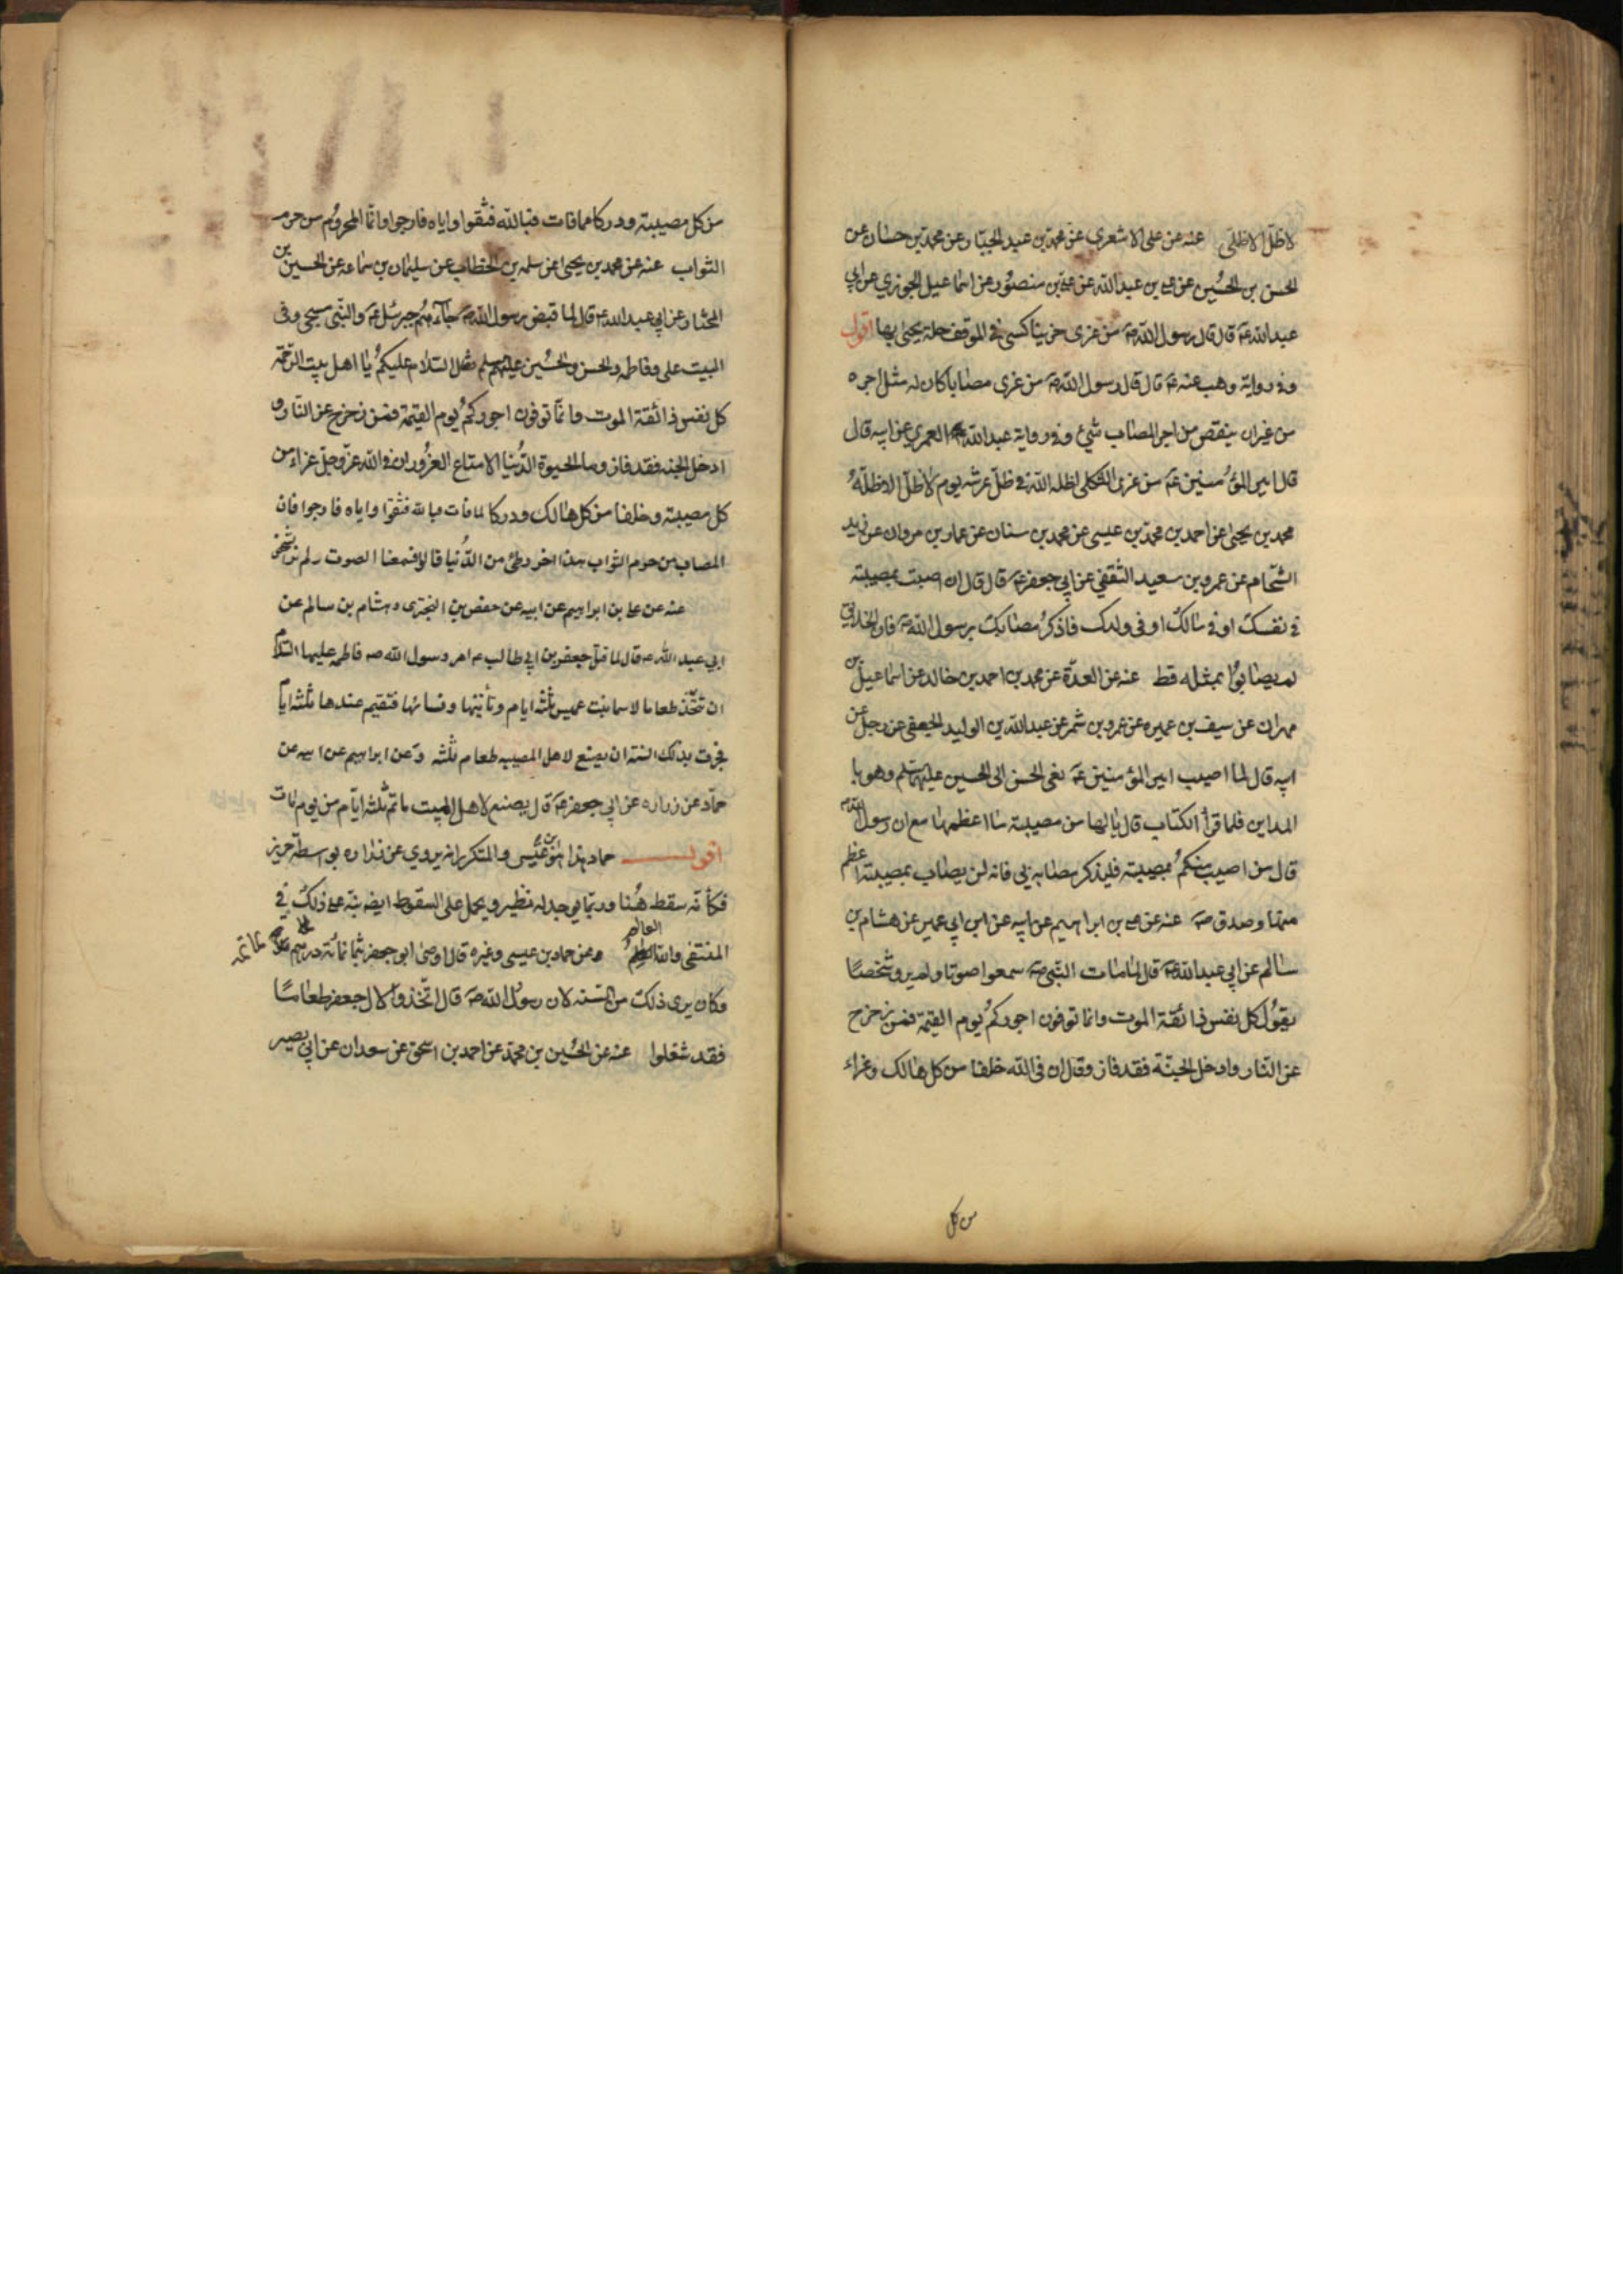 لا ظلّ الا ظلّي عنه عن على الاشعرى عن محمّد بن عبد الجبّار عن محمّد بن حسّان عن
الحسن بن الحُسين عن علي بن عبد اللّه عن علي بن منصُور عن اسمٰاعيل الجوزي عن ابي
عبد اللّه عَ قال قال رسول اللّه صَ من عزى حزينا كسى في الموقف حلة يحبى بها اقول
و في رواية وهب عنه عَ قال قال رسول اللّه صَ من عزى مصٰابا كان له مثل اجره
من غير ان ينقص من اجر المصٰاب شيئ و في رواية عبد اللّه العمري عن ابيه قال
قال امير المؤمنين عَ من عزى الثكلى اظله اللّه في ظلّ عرشه يوم لا ظلّ الا ظلّهُ
محمد بن يحيىٰ عن احمد بن محمّد بن عيسى عن محمد بن سنان عن عمار بن مروان عن زيد
الشّحام عن عمرو بن سعيد الثقفي عن ابي جعفر عَ قال قال ان اصبت بمصيبته
في نفسك او في مٰالك او فى ولدك فاذكرُ مصٰابك برسول اللّه صَ فان الخلايق
لم يصٰابُوا بمثله قط عنه عن العدّة عن محمد بن احمد بن خالد عن اسمٰاعيل بن
مهران عن سيف بن عميره عن عمرو بن شمر عن عبد اللّه بن الوليد الجعفي عن رجل عن
ابيه قال لما اصيب امير المؤمنين عَ نعى الحسن الى الحسين عليهما سلم و هو با
المداين فلما قرأ الكتاب قال يا لها من مصيبته مٰا اعظمهٰا مع ان رسول اللّه ص
قال من اصيب منكمُ بمصيبته فليذكر مصٰابه بي فانه لن يصٰاب بمصيبته اعظم
منها و صدق صَ عنه عن علي بن ابراهيم عن ابيه عن ابن ابي عمير عن هشام بن
سٰالم عن ابي عبد اللّه عَ قال لمٰا مٰات النّبي صَ سمعوا صوتا و لم يروا شخصًا
يقوُل كل نفس ذائقة الموت و انما توفون اجوركمُ يوم القيمة فمن زحزح
عن النّار و ادخل الجنّة فقد فاز و قال ان فى اللّه خلفا من كل هٰالك و عزاء
من كل
من كل مصيبته و دركا مما فات فباللّه فثقوا و اياه فارجوا و انّما المحروُم من حرم
الثواب عنه عن محمد بن يحيى عن سلمه بن الخطاب عن سليمان بن سمٰاعه عن الحسين بن
المختار عن ابي عبد اللّه عَ قال لما قبض رسول اللّه صَ جاءهُم جبرئيل عَ و النّبى مسجى و فى
البيت على و فاطمه و الحسن و الحُسين عليهم سلم فقال السّلام عليكمُ يٰا اهل بيت الرّحمة
كل نفس ذائقة الموت و انمّا توفون اجوركمُ يوم القيمة فمن زحزح عن النّار و
ادخل الجنه فقد فاز و ما الحيوة الدّنيا الا متاع الغرُور ان في اللّه عزّ و جلّ عزاء من
كل مصيبته و خلفا من كل هٰالك و دركا لما فات فباللّه فثقوا و اياه فارجوا فان
المصاب من حرم الثواب هذا اخر وطئ من الدُّنيا قالوا فسمعنا الصوت و لم نر شخص
عنه عن علي بن ابراهيم عن ابيه عن حفص بن البخترى و هشام بن سالم عن
ابي عبد اللّه ع قال لما قتل جعفر بن ابي طالب ع امر رسول اللّه ص فاطمه عليها السّلام
ان تتّخذ طعاما لاسما بنت عميس ثلٰثه ايام و تأتيها و نسائها فتقيم عندها ثلٰثه ايام
فجرت بذلك السنة ان يصنع لاهل المصيبه طعام ثلٰثه و عن ابراهيم عن ابيه عن
حمّاد عن زراره عن ابي جعفر عَ قال يصنع لاهل الميت ماتم ثلثه ايّام من يوم مٰات
اقول حماد هذا هو بن عيسى و المتكرر انه يروي عن زراره بواسطة حريز
فكأنّه سقط هُنا و ربّما يوجد له نظير و يحمل على السّقوط ايضه نبّه على ذلك في
المنتقى و اللّه العالم و عن حماد بن عيسى و غيره قال اوصى ابو جعفر بثمانمائة درهم لماتمه
و كان يرى ذلك من السّنه لان رسوُل اللّه صَ قال اتّخذوا لال جعفر طعامًا
فقد شغلوا عنه عن الحُسين بن محمّد عن احمد بن اسحق عن سعدان عن ابي بصير